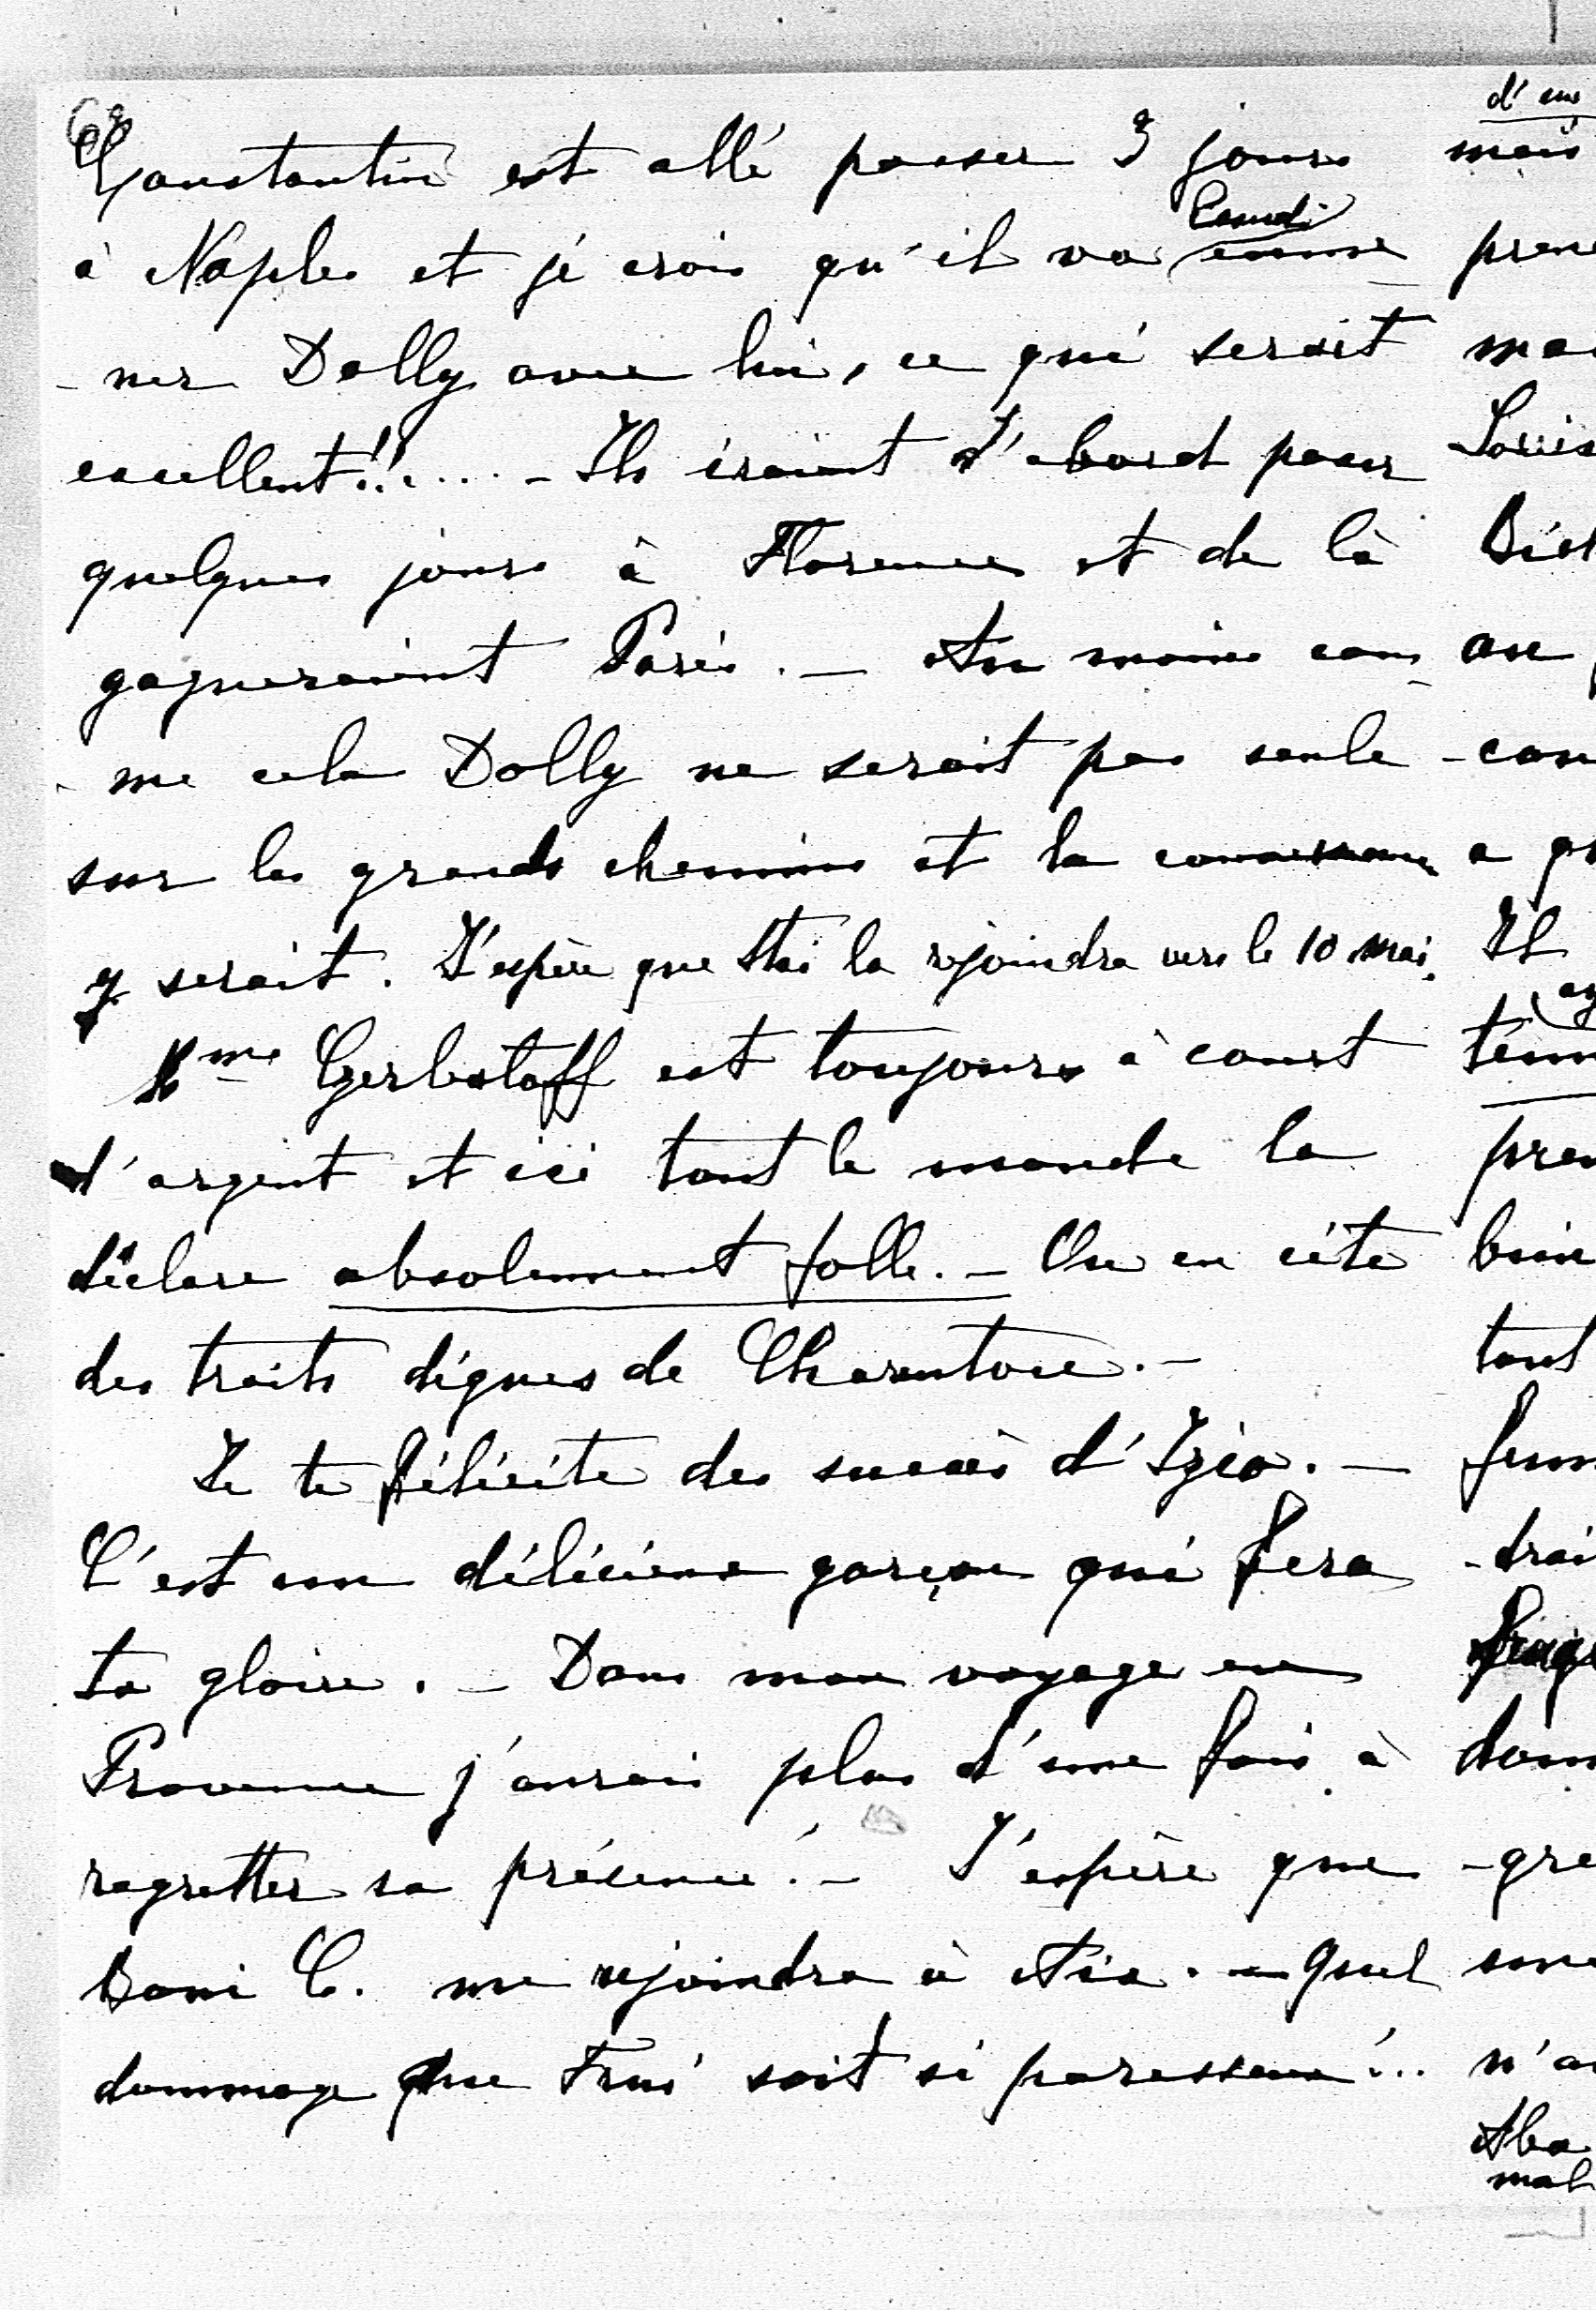 Constantin est allé passer 3 jours
à Naples et je crois qu'il va emme-
Lundi
-ner Dolly avec lui, ce qui serait
excellent!!.... - Ils iraient d'abord pour
quelques jours à Florence et de là
gagneraient Paris. - Au moins com-
-me cela Dolly ne serait pas seule
sur les grands chemins et la convenance
y serait. J'espère que Stai la rejoindra vers le 10 mai.
Mme Gerbstoff est toujours à court
d'argent et ici tout le monde la
déclare absolument folle. - On en cite
des traits dignes de Charenton. -
Je te félicite des succès d'Izio. -
C'est un délicieux garçon qui fera
ta gloire. - Dans mon voyage en
Provence j'aurais plus d'une fois à
regretter sa présence! - J'espère que
Boni C. me rejoindra à Aix. - Quel
dommage que soit si paresseux!...
d'un
mais
pren
Louis
au
-con
a
Il
pren
tout
-drai
-gre
n'a
mal